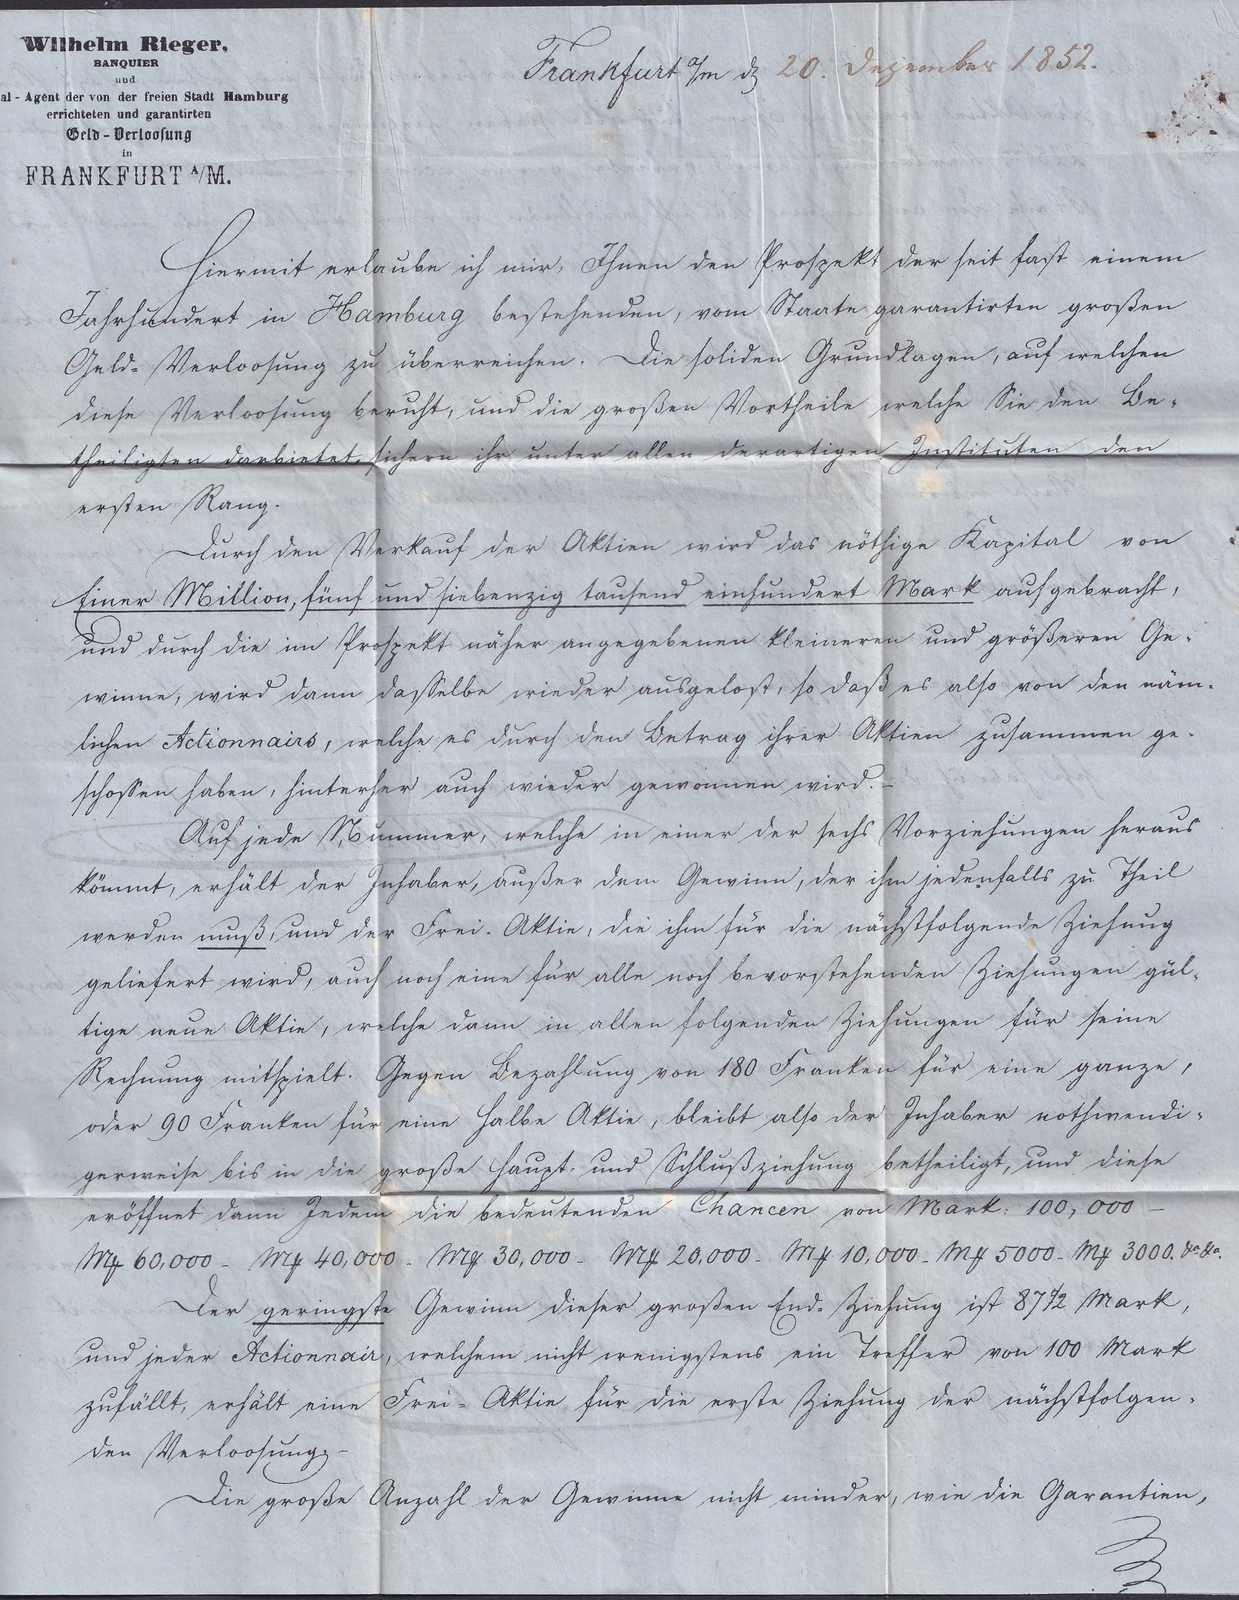 Wilhelm Rieger,
BANQUIER
und
al-Agent der von der freien Stadt Hamburg
errichteten und garantirten
Geld-Verloosung
in
FRANKFURT A/M.
Frankfurt a/m d 20. Dezember 1852.
Hiermit erlaube ich mir, Ihnen den Prospekt der seit fast einem
Jahrhundert in Hamburg bestehenden, vom Staate garantirten großen
Geld-Verloosung zu überreichen. Die soliden Grundlagen, auf welchen
diese Verloosung beruht, und die großen Vortheile welche Sie den Be-
theiligten darbietet, sichern ihr unter allen derartigen Instituten den
ersten Rang.
Durch den Verkauf der Aktien wird das nöthige Kapital von
Einer Million, fünf und siebenzig tausend einhundert Mark aufgebracht,
und durch die im Prospekt näher angegebenen kleineren und größeren Ge-
winne, wird dann dasselbe wieder ausgelost, so daß es also von den näm-
lichen Actionnairs, welche es durch den Betrag ihrer Aktien zusammen ge-
schossen haben, hinterher auch wieder gewonnen wird.-
Auf jede Nummer, welche in einer der sechs Vorziehungen heraus
kömmt, erhält der Inhaber, außer dem Gewinn, der ihm jedenfalls zu Theil
werden muß, und der Frei-Aktie, die ihm für die nächstfolgende Ziehung
geliefert wird, auch noch eine für alle noch bevorstehenden Ziehungen gül-
tige neue Aktie, welche dann in allen folgenden Ziehungen für seine
Rechnung mitspielt. Gegen Bezahlung von 180 Franken für eine ganze,
oder 90 Franken für eine halbe Aktie, bleibt also der Inhaber nothwendi-
gerweise bis in die große Haupt- und Schlußziehung betheiligt, und diese
eröffnet dann Jedem die bedeutenden Chancen von Mark: 100,000 -
Mk 60,000 - Mk 40,000 - Mk 30,000 - Mk 20,000 - Mk 10,000 - Mk 5000 - Mk 3000. &a &a.
Der geringste Gewinn dieser großen End-Ziehung ist 87 1/2 Mark,
und jeder Actionnair, welchem nicht wenigstens ein Treffer von 100 Mark
zufällt, erhält eine Frei-Aktie für die erste Ziehung der nächstfolgen-
den Verloosung.-
Die große Anzahl der Gewinne nicht minder, wie die Garantien,